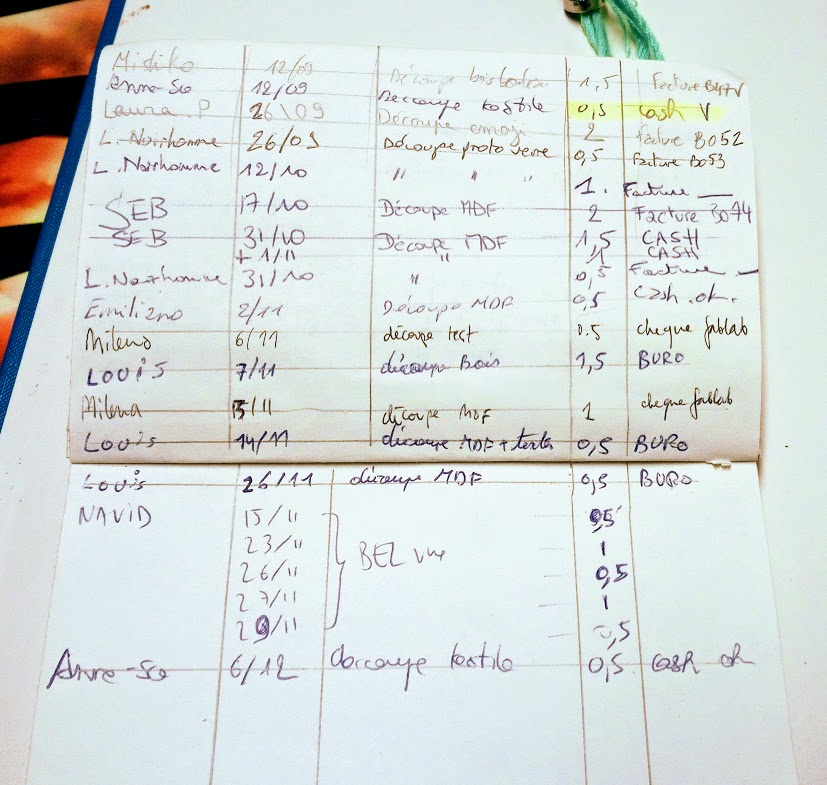 Michiko 12/09 Découpe bois 1,5 Facture B47 V
Anne-So 12/09 Decoupe textile 0,5 cash V
Laura.P 26/09 Découpe 2 Facture B052
L. Norrhomme 26/09 Découpe proto verre 0,5 Facture B053
L. Norrhomme 12/10 " " " 1. Facture —
SEB 17/10 Découpe MDF 2 Facture B074
SEB 31/10 Découpe MDF 1,5 CASH
+ 1/11 " 1 CASH
L. Norrhomme 31/10 " 0,5 Facture —
Emiliano 2/11 Découpe MDF 0,5 Cash.ok.
Milena 6/11 découpe test 0.5 cheque fablab
LOUiS 7/11 découpe Bois 1,5 BURO
Milena /11 découpe MDF 1 cheque fablab
Louis 14/11 découpe MDF + 0,5 BURO
Louis 26/11 découpe MDF 0,5 BURO
NAVID 15/11 0,5
23/11 1
26/11 BEL vue 0,5
27/11 1
29/11 0,5
Anne-So 6/12 decoupe textile 0,5 cash ok